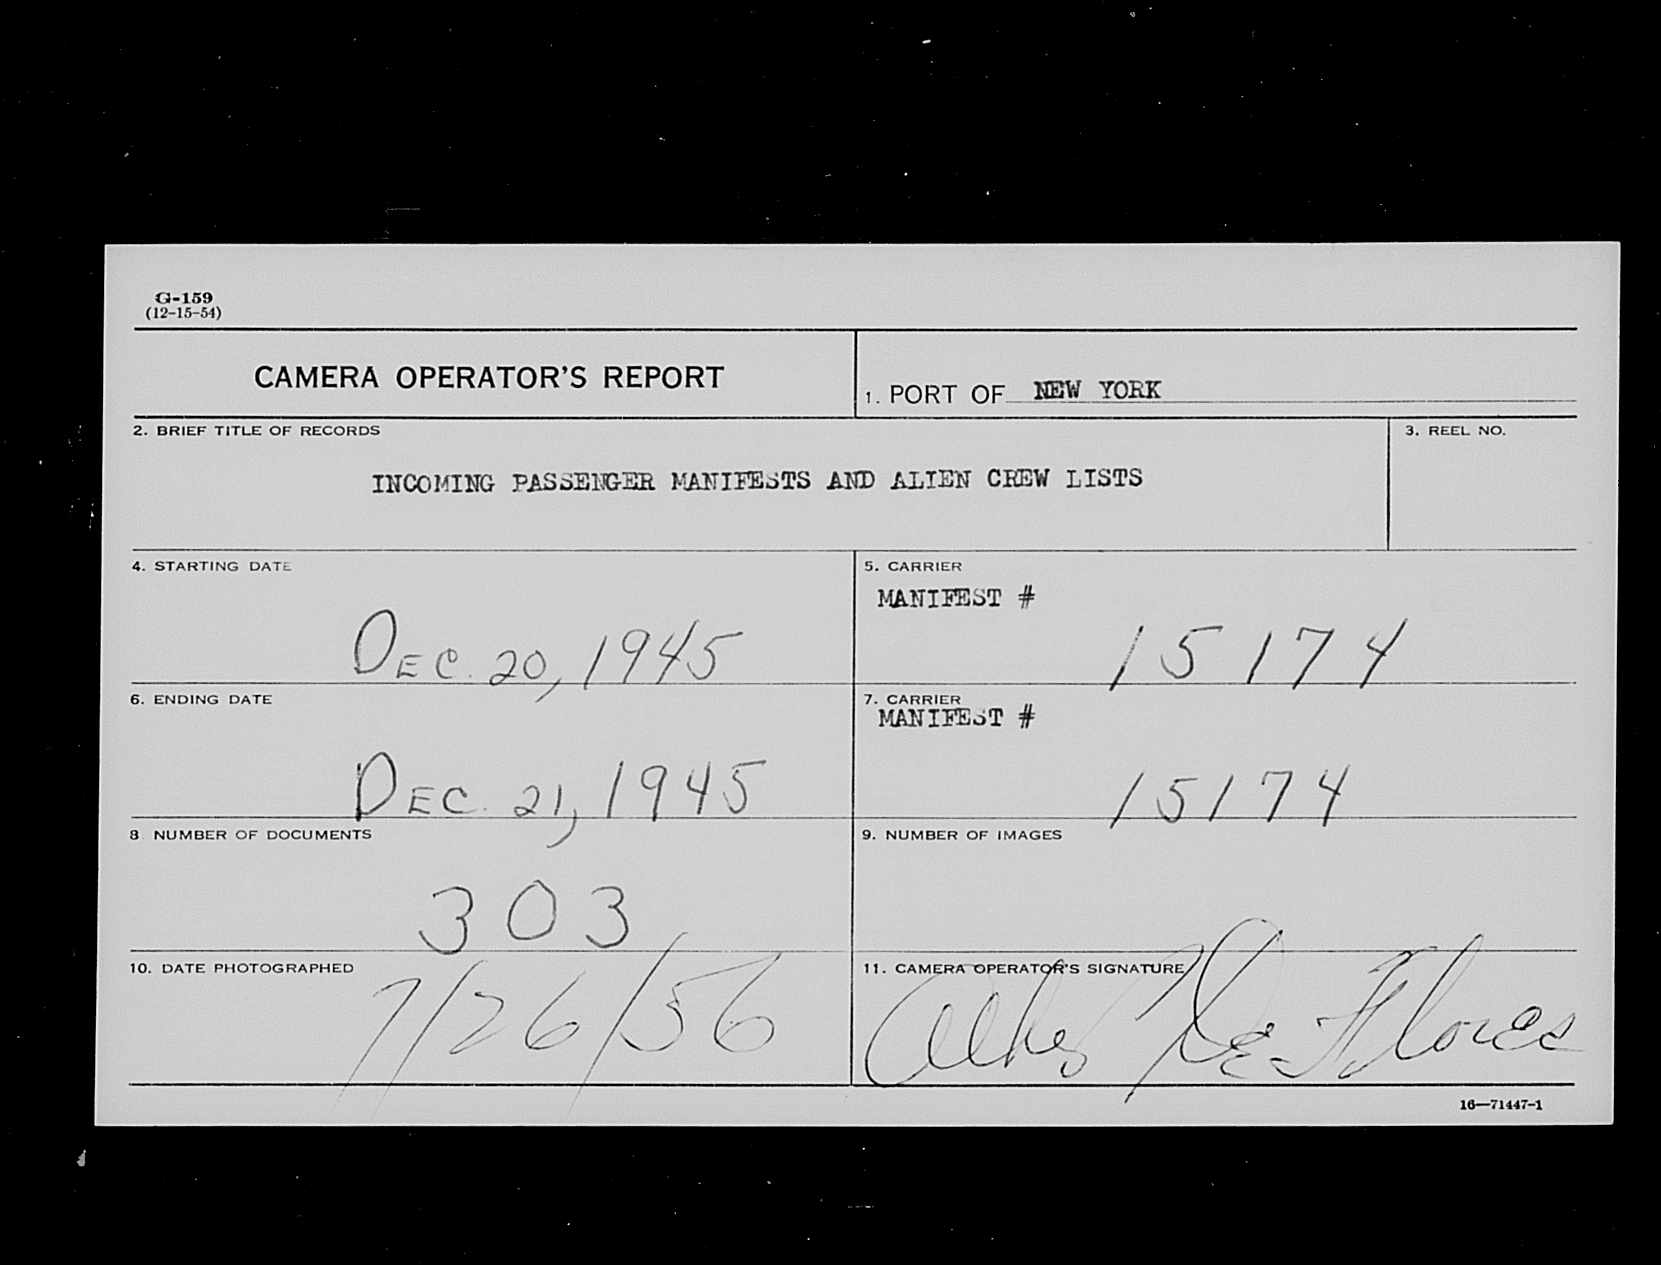 G-159
(12-15-54)
CAMERA OPERATOR'S REPORT
1. PORT OF NEW YORK
2. BRIEF TITLE OF RECORDS
3. REEL NO.
INCOMING PASSENGER MANIFESTS AND ALIEN CREW LISTS
4. STARTING DATE
5. CARRIER
MANIFEST #
DEC. 20, 1945
15174
6. ENDING DATE
7. CARRIER
MANIFEST #
DEC. 21, 1945
15174
8 NUMBER OF DOCUMENTS
9. NUMBER OF IMAGES
303
10. DATE PHOTOGRAPHED
11. CAMERA OPERATOR'S SIGNATURE
7/26/56
Flores
16—71447-1